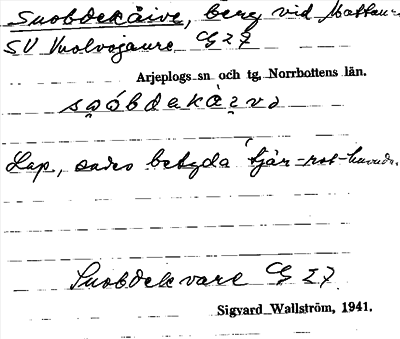 Suobdekåive, berg vid Mattau-
SV Vuolvojaure G 27
Arjeplogs sn och tg, Norrbottens län.
Lap, sades betyda "tjär-rot-huvudet.
Suobdekvare G 27
Sigvard Wallström, 1941.